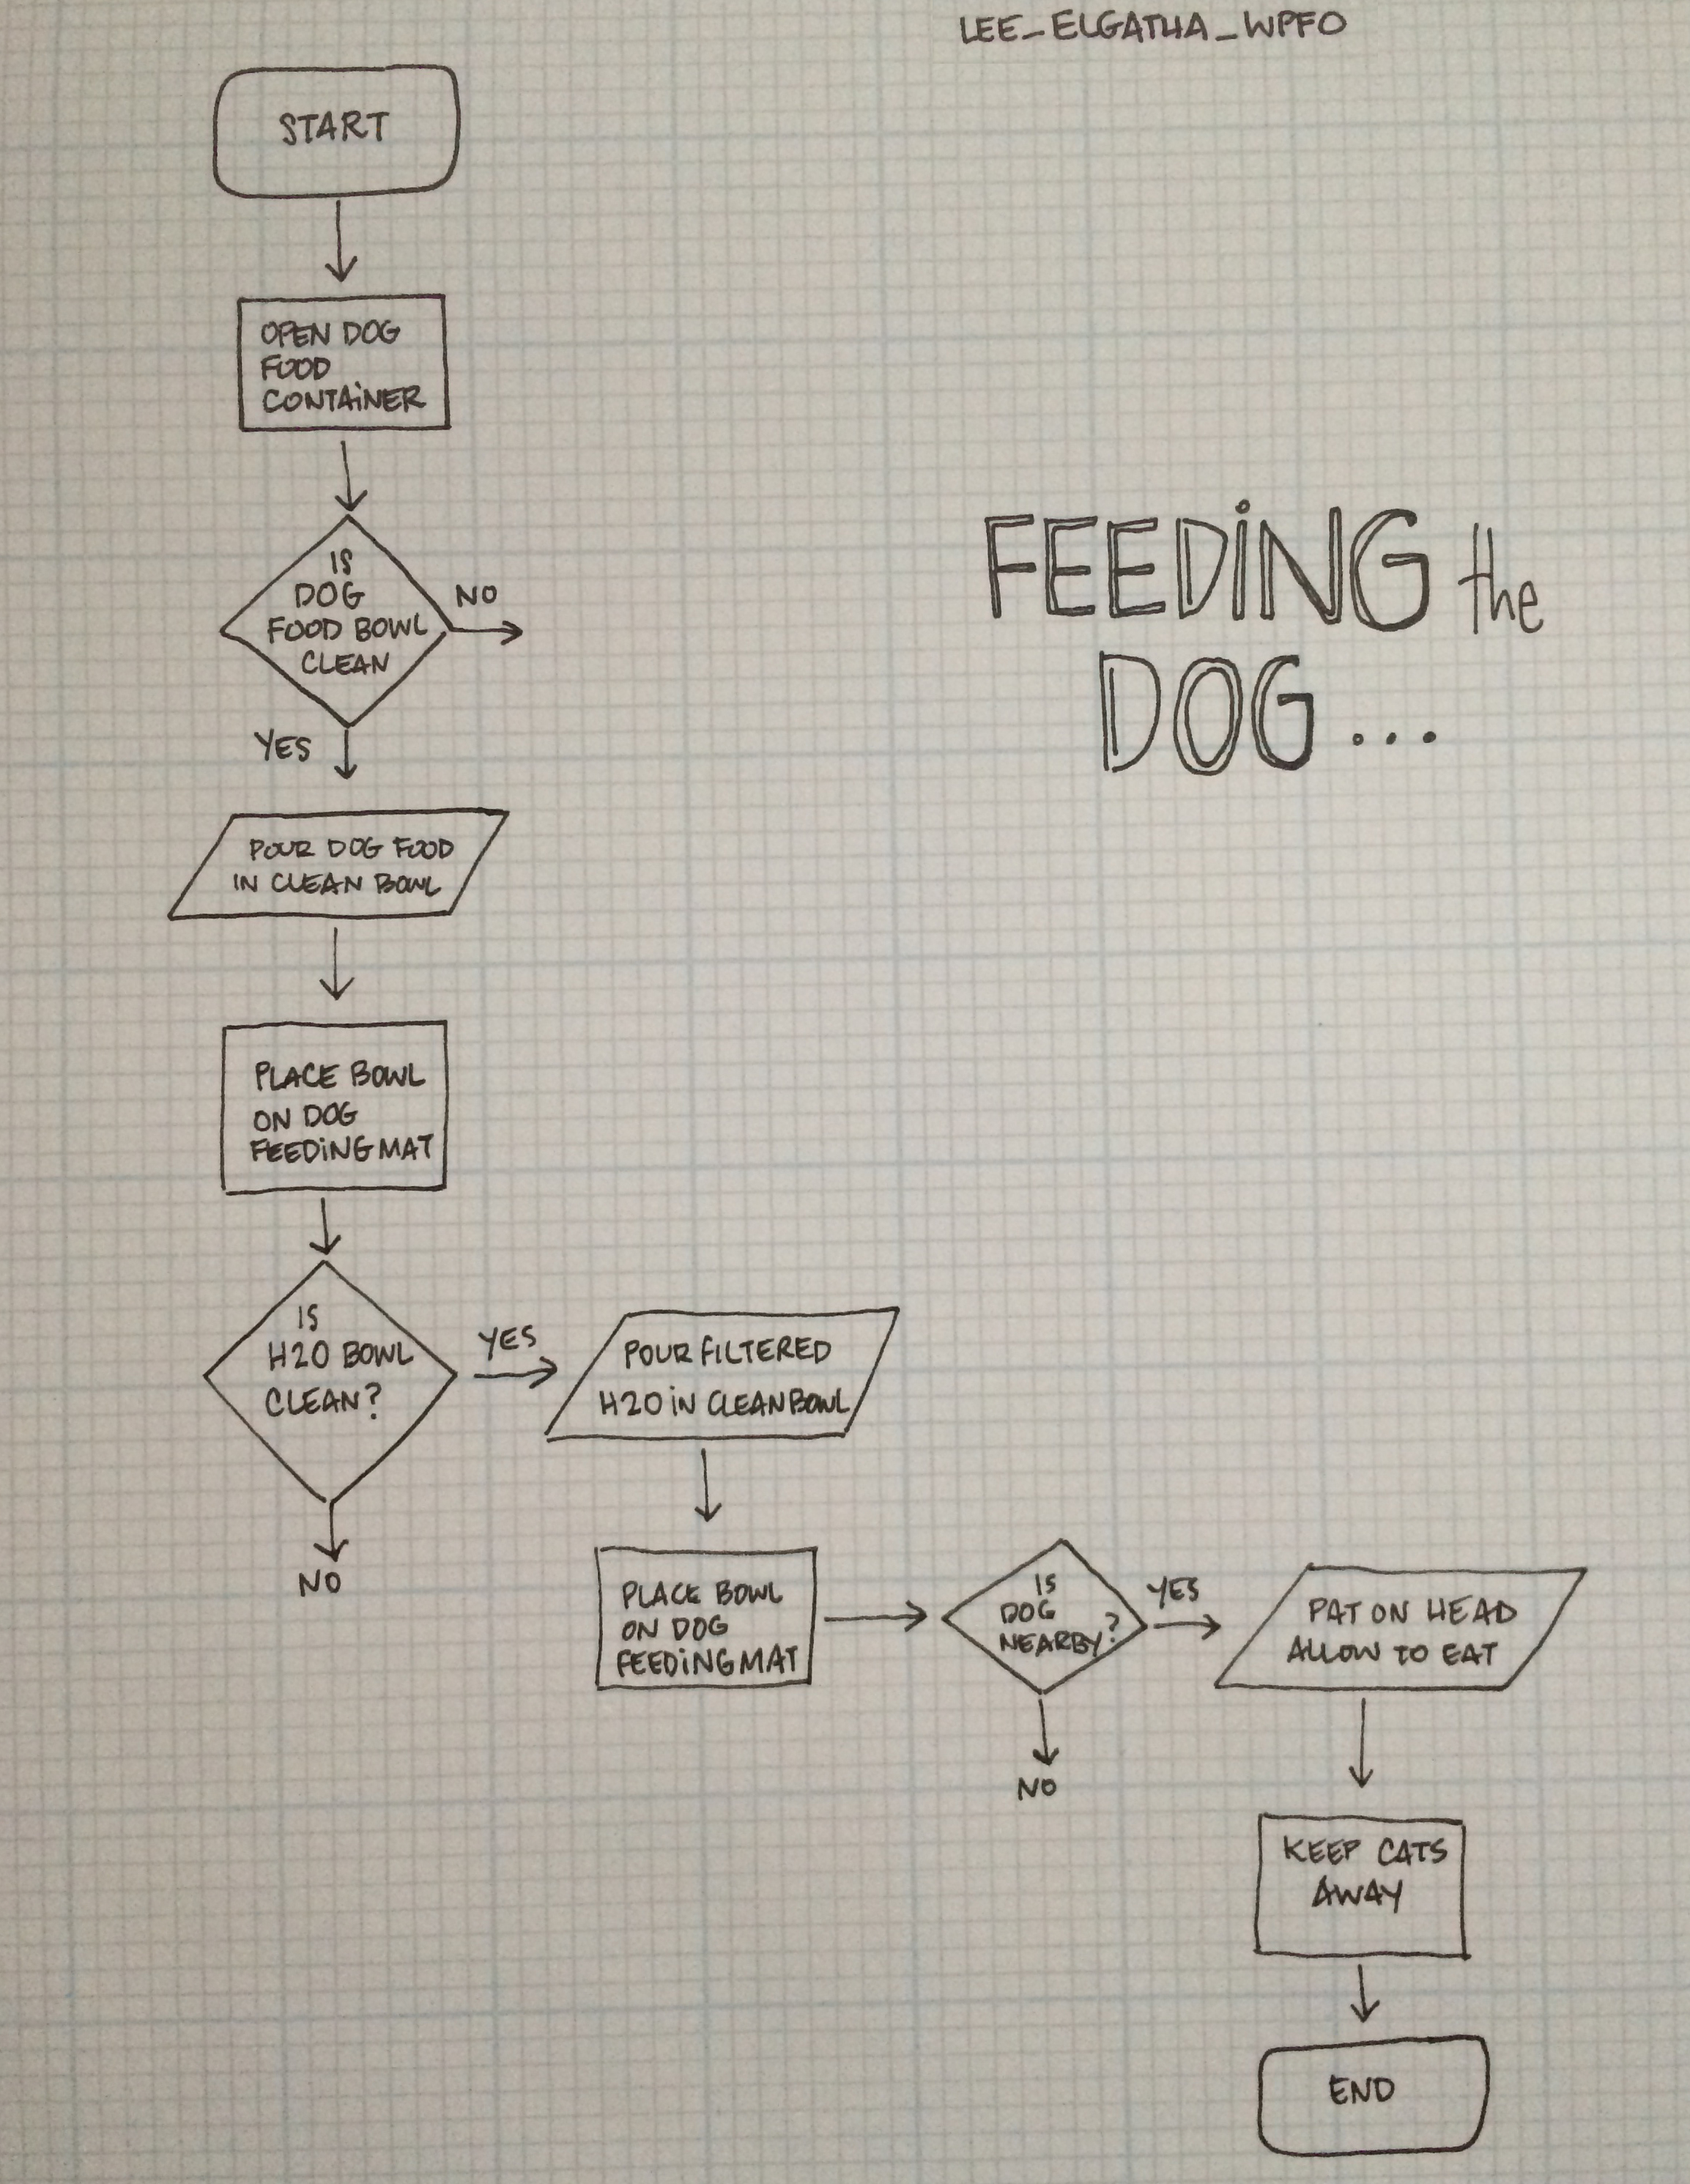 LEE_ELGATHA_WPFO
START
OPEN DOG
FOOD
CONTAINER
IS
DOG
FOOD BOWL
CLEAN
NO
YES
FEEDING the
DOG...
POUR DOG FOOD
IN CLEAN BOWL
PLACE BOWL
ON DOG
FEEDING MAT
IS
H2O BOWL
CLEAN?
YES
NO
POUR FILTERED
H2O IN CLEAN BOWL
PLACE BOWL
ON DOG
FEEDING MAT
IS
DOG
NEARBY?
YES
NO
PAT ON HEAD
ALLOW TO EAT
KEEP CATS
AWAY
END